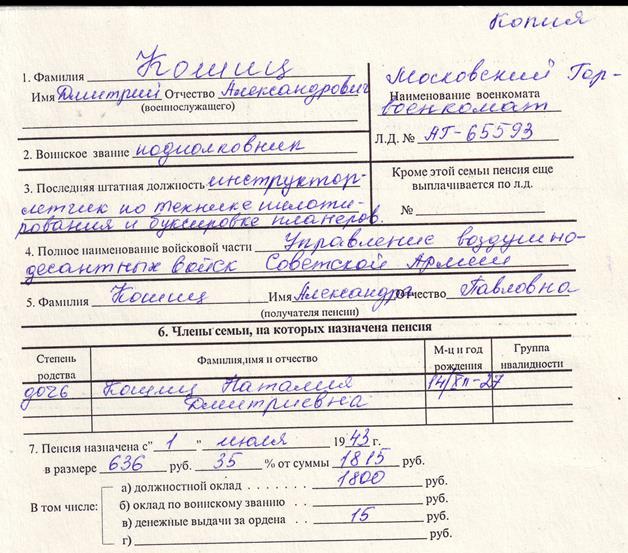 Копия
1. Фамилия Кошиц
Имя Дмитрий Отчество Александрович
(военнослужащего)
Московский Гор-
Наименование военкомата
военкомат
Л.Д. № АГ-65593
2. Воинское звание подполковник
3. Последняя штатная должность инструктор-
летчик по технике пилоти-
рования и буксировке планеров.
Кроме этой семьи пенсия еще
выплачивается по л.д.
№
4. Полное наименование войсковой части Управление воздушно-
десантных войск Советской Армии
5. Фамилия Кошиц Имя Александра Отчество Павловна
(получателя пенсии)
6. Члены семьи, на которых назначена пенсия
Степень родства Фамилия,имя и отчество М-ц и год рождения Группа нвалидности
дочь Кошиц Наталия 14/XII-27
Дмитриевна
7. Пенсия назначена с" 1 " июля 1943 г.
в размере 636 руб. 35 % от суммы 1815 руб.
В том числе:
а) должностной оклад . . . . . . . 1800 руб.
б) оклад по воинскому званию . . . руб.
в) денежные выдачи за ордена . . 15 руб.
г) руб.